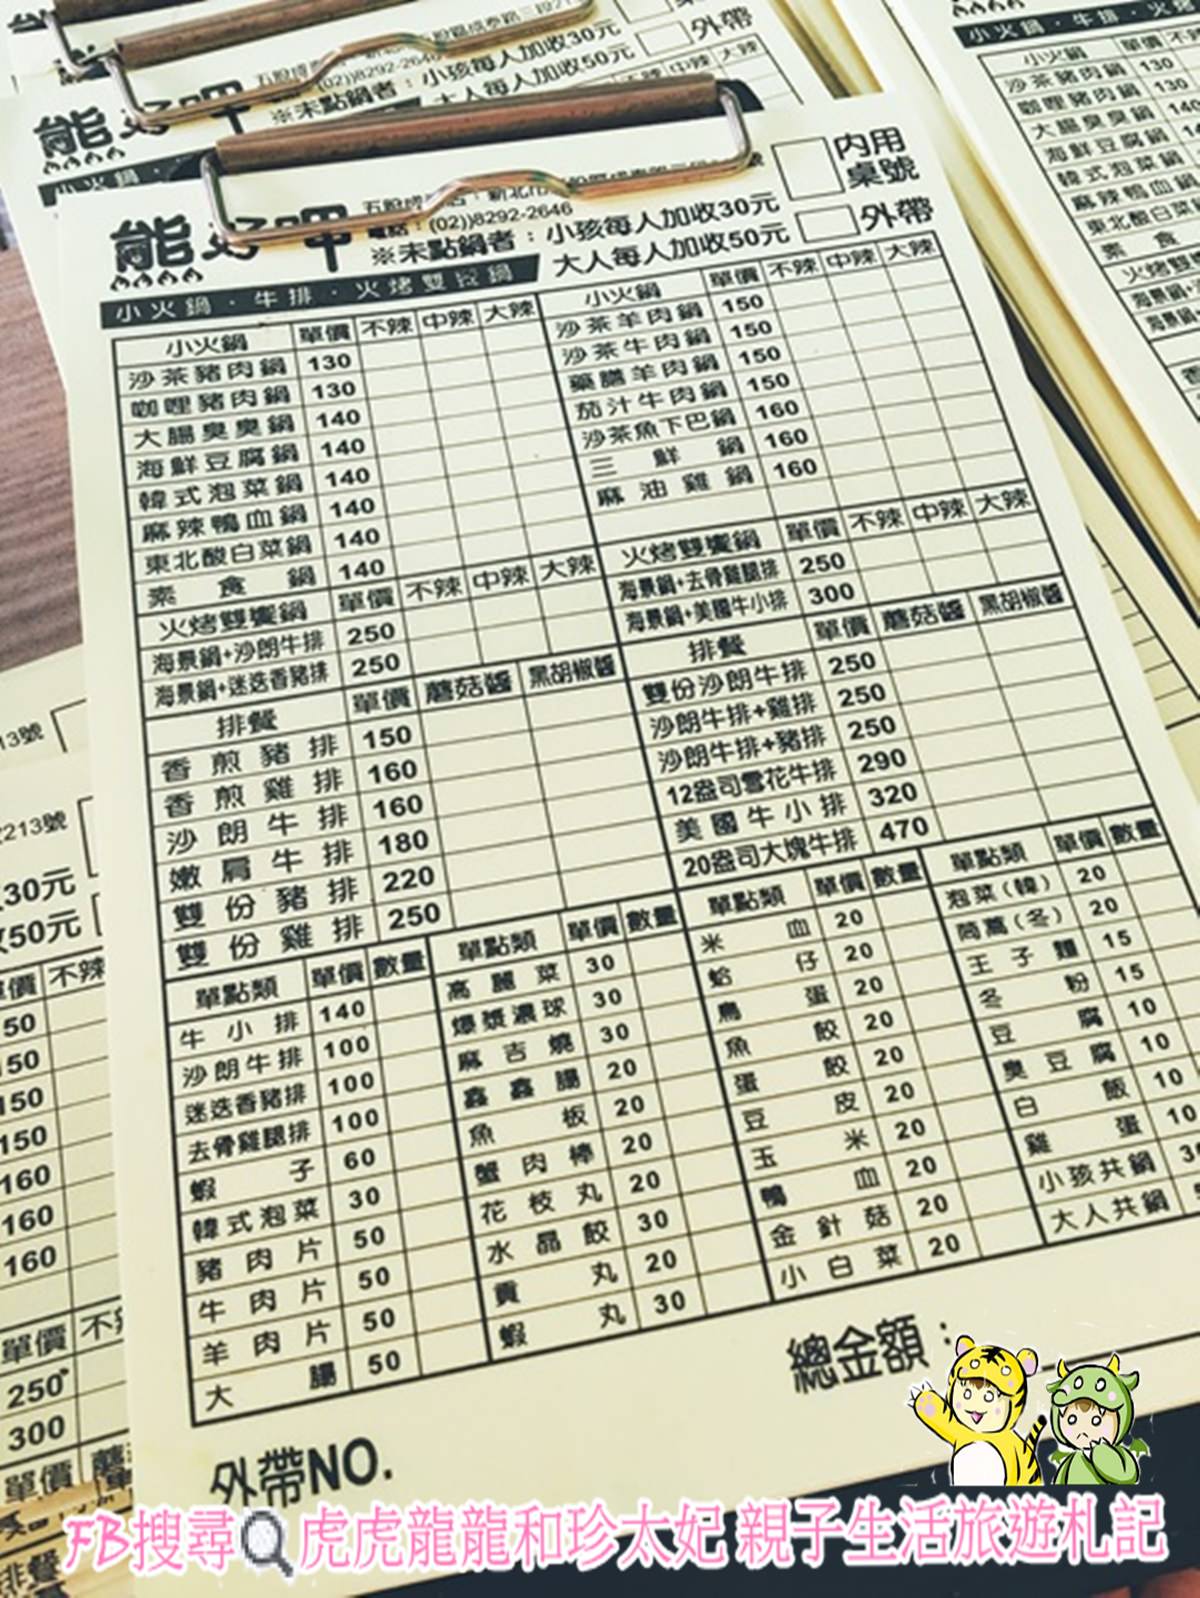 能好呷
(02))8292-2646
※未點鍋者：小孩每人加收30元
大人每人加收50元
內用桌號
外帶
小火鍋・牛排・火烤雙饗鍋
小火鍋 單價 不辣 中辣 大辣
沙茶豬肉鍋 130
咖哩豬肉鍋 130
大腸臭臭鍋 140
海鮮豆腐鍋 140
韓式泡菜鍋 140
麻辣鴨血鍋 140
東北酸白菜鍋 140
素食鍋 140
火烤雙饗鍋 單價 不辣 中辣 大辣
海景鍋+沙朗牛排 250
海景鍋+迷迭香豬排 250
排餐 單價 蘑菇醬 黑胡椒醬
香煎豬排 150
香煎雞排 160
沙朗牛排 160
嫩肩牛排 180
雙份豬排 220
雙份雞排 250
小火鍋 單價 不辣 中辣 大辣
沙茶羊肉鍋 150
沙茶牛肉鍋 150
藥膳羊肉鍋 150
茄汁牛肉鍋 150
沙茶魚下巴鍋 160
三鮮鍋 160
麻油雞鍋 160
火烤雙饗鍋 單價 不辣 中辣 大辣
海景鍋+去骨雞腿排 250
海景鍋+美國牛小排 300
排餐 單價 蘑菇醬 黑胡椒醬
雙份沙朗牛排 250
沙朗牛排+雞排 250
沙朗牛排+豬排 250
12盎司雪花牛排 290
美國牛小排 320
20盎司大塊牛排 470
單點類 單價 數量
牛小排 140
沙朗牛排 100
迷迭香豬排 100
去骨雞腿排 100
蝦子 60
韓式泡菜 30
豬肉片 50
牛肉片 50
羊肉片 50
大腸 50
單點類 單價 數量
高麗菜 30
爆漿濃球 30
麻吉燒 30
鑫鑫腸 20
魚板 20
蟹肉棒 20
花枝丸 20
水晶餃 30
貢丸 20
蝦丸 30
單點類 單價 數量
米血 20
蛤仔 20
鳥蛋 20
魚餃 20
蛋餃 20
豆皮 20
玉米 20
鴨血 20
金針菇 20
小白菜 20
單點類 單價 數量
泡菜(韓) 20
茼蒿(冬) 20
王子麵 15
冬粉 15
豆腐 10
臭豆腐 10
白飯 10
雞蛋 10
小孩共鍋
大人共鍋
總金額：
外帶NO.
FB搜尋 虎虎龍龍和珍太妃 親子生活旅遊札記